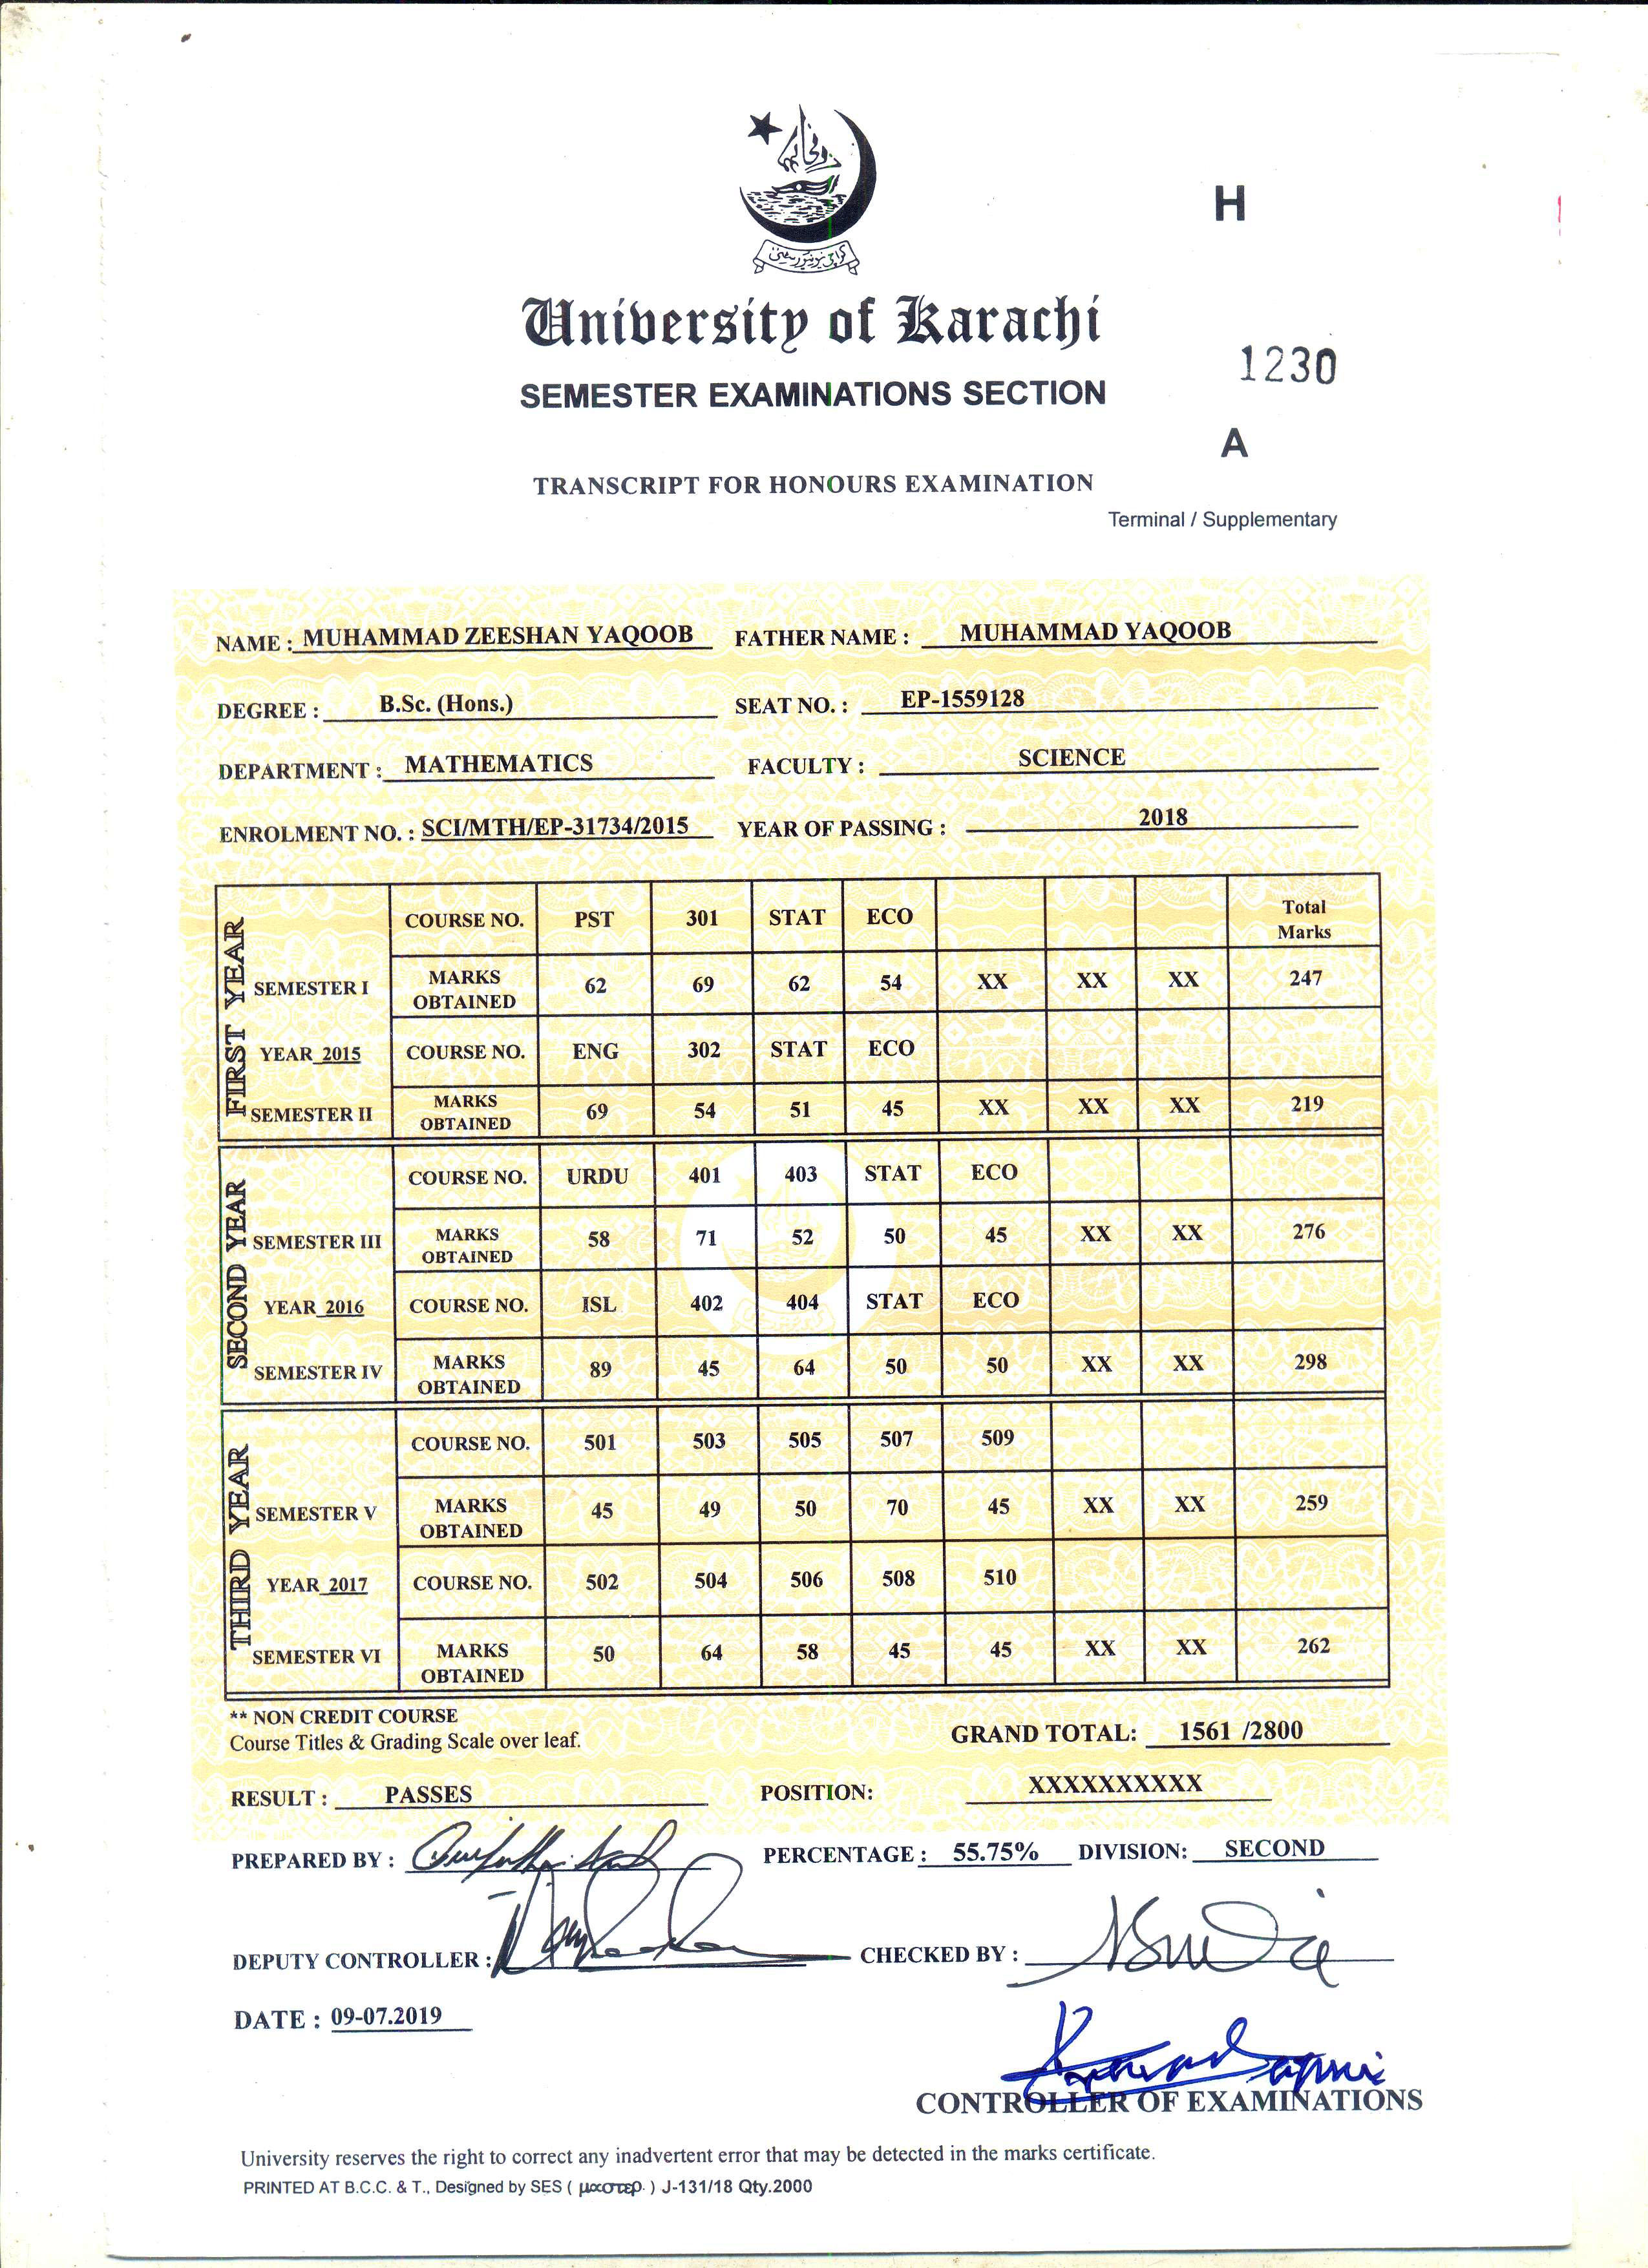 H
University of Karachi
1230
SEMESTER EXAMINATIONS SECTION
A
TRANSCRIPT FOR HONOURS EXAMINATION
Terminal / Supplementary
NAME : MUHAMMAD ZEESHAN YAQOOB FATHER NAME : MUHAMMAD YAQOOB
DEGREE : B.Sc. (Hons.) SEAT NO. : EP-1559128
DEPARTMENT : MATHEMATICS FACULTY : SCIENCE
ENROLMENT NO. : SCI/MTH/EP-31734/2015 YEAR OF PASSING : 2018
FIRST YEAR
COURSE NO. PST 301 STAT ECO Total Marks
SEMESTER I MARKS OBTAINED 62 69 62 54 XX XX XX 247
YEAR 2015 COURSE NO. ENG 302 STAT ECO
SEMESTER II MARKS OBTAINED 69 54 51 45 XX XX XX 219
SECOND YEAR
COURSE NO. URDU 401 403 STAT ECO
SEMESTER III MARKS OBTAINED 58 71 52 50 45 XX XX 276
YEAR 2016 COURSE NO. ISL 402 404 STAT ECO
SEMESTER IV MARKS OBTAINED 89 45 64 50 50 XX XX 298
THIRD YEAR
COURSE NO. 501 503 505 507 509
SEMESTER V MARKS OBTAINED 45 49 50 70 45 XX XX 259
YEAR 2017 COURSE NO. 502 504 506 508 510
SEMESTER VI MARKS OBTAINED 50 64 58 45 45 XX XX 262
** NON CREDIT COURSE
Course Titles & Grading Scale over leaf.
GRAND TOTAL: 1561 /2800
RESULT : PASSES POSITION: XXXXXXXXXX
PREPARED BY : PERCENTAGE : 55.75% DIVISION: SECOND
DEPUTY CONTROLLER : CHECKED BY :
DATE : 09-07.2019
CONTROLLER OF EXAMINATIONS
University reserves the right to correct any inadvertent error that may be detected in the marks certificate.
PRINTED AT B.C.C. & T., Designed by SES ( μαστερ. ) J-131/18 Qty.2000